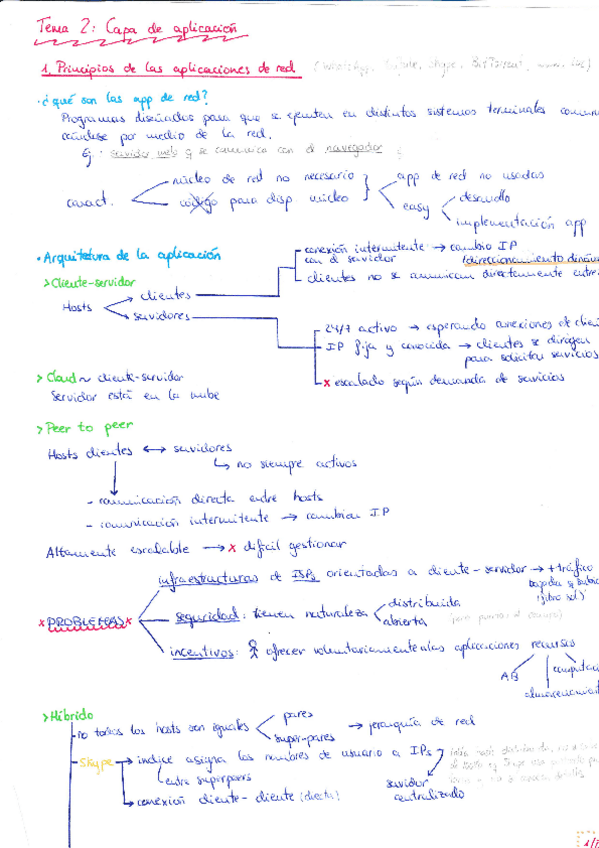 Tema 2: Capa de aplicación
1. Principios de las aplicaciones de red (WhatsApp, YouTube, Skype, BitTorrent,
· ¿qué son las app de red?
Programas diseñados para que se ejecuten en distintos sistemas terminales comuni
cándose por medio de la red.
Ej: servidor web se comunica con el navegador
núcleo de red no necesario
app de red no usadas
caract.
código para disp. núcleo
easy
desarrollo
implementación app
· Arquitetura de la aplicación
conexión intermitente → cambio IP
con el servidor
(direccionamiento dinám
> Cliente-servidor
clientes no se comunican directamente entre
Hosts
clientes
servidores
24/7 activo → esperando conexiones de clien
IP fija y conocida → clientes se dirigen
para solicitar servicios
x escalado según demanda de servicios
> Cloud ~ cliente-servidor
servidor está en la nube
> Peer to peer
Hosts clientes ↔ servidores
no siempre activos
- comunicación directa entre hosts
- comunicación intermitente → cambian IP
Altamente escalable → x difícil gestionar
infraestructuras de ISPs orientadas a cliente-servidor → + tráfico
bajada q subida
x PROBLEMAS x
seguridad: tienen naturaleza
distribuida
abierta
incentivos: ofrecer voluntariamente a las aplicaciones recursos
AB
computac
almacenamient
> Híbrido
no todos los hosts son iguales
pares
super-pares
→ jerarquía de red
- Skype → índice asigna los nombres de usuario a IPs
entre superpares
servidor
centralizado
→ conexión cliente-cliente (directa)